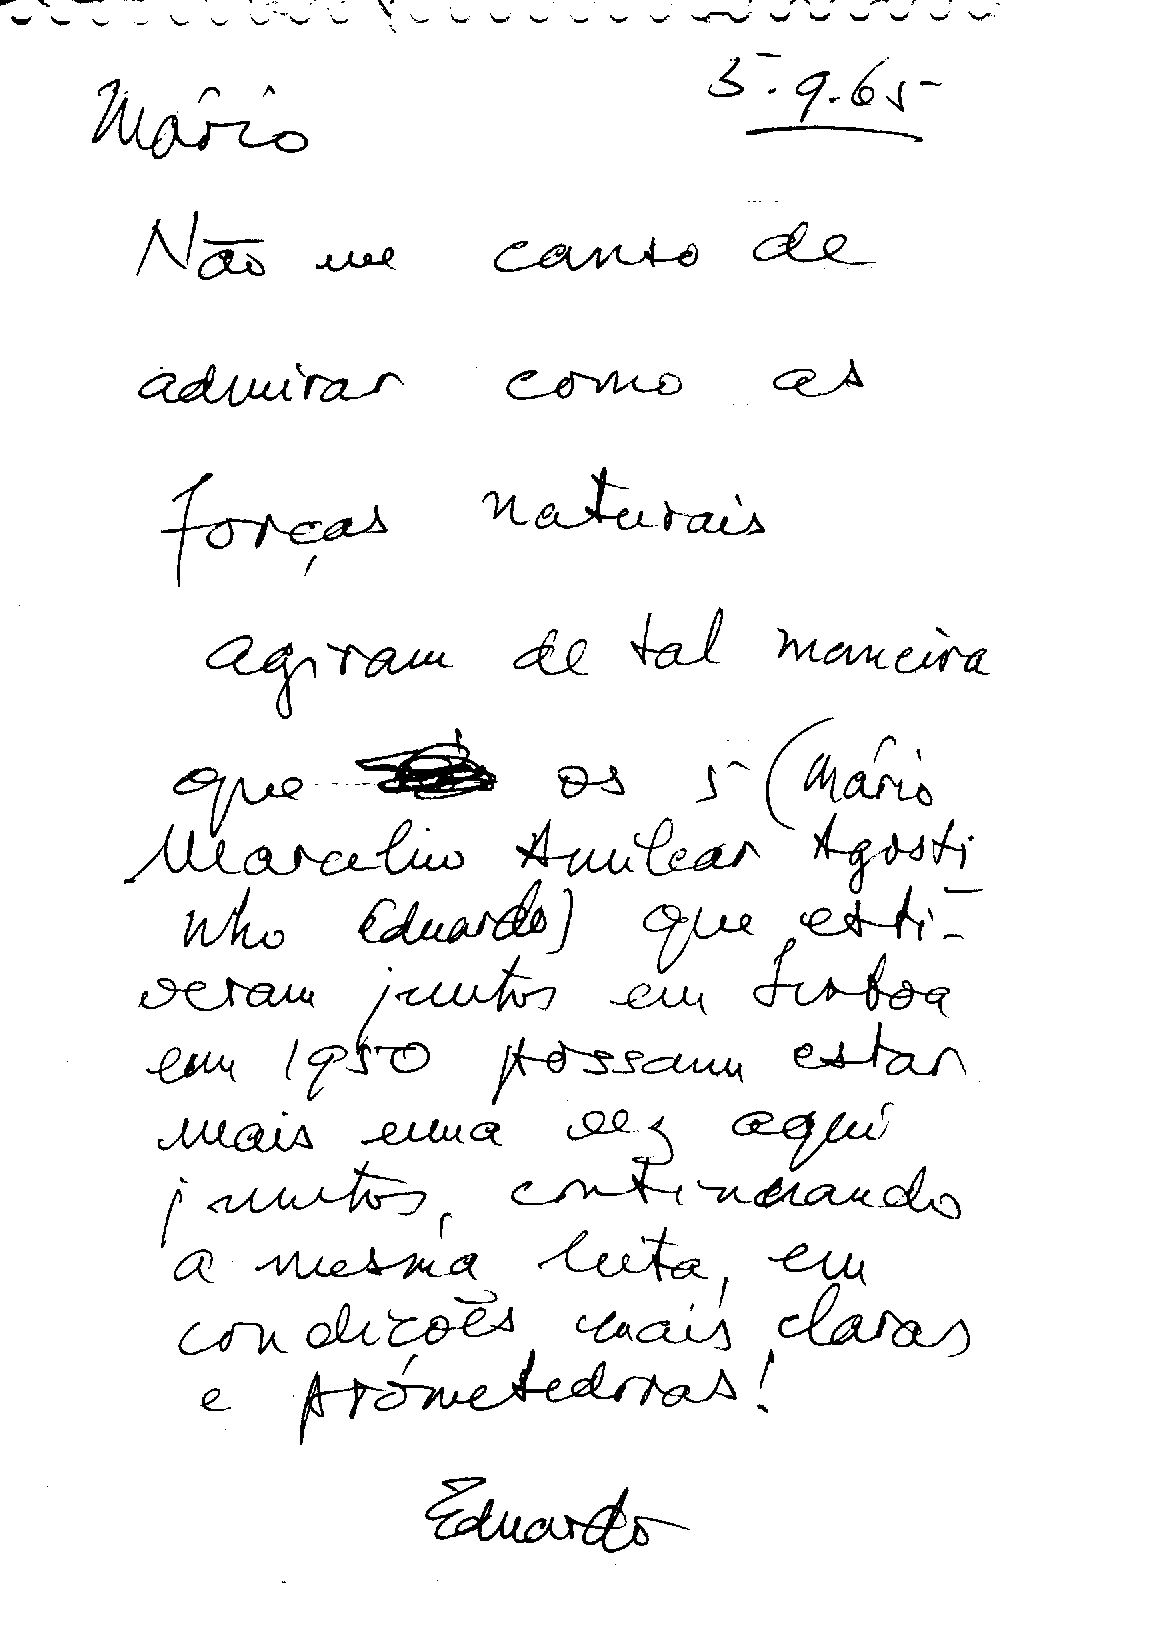 5.9.65
Mário
Não me canso de
admirar como as
forças naturais
agiram de tal maneira
que os 5 (Mário
Marcelino Amílcar Agosti
nho Eduardo) que esti-
veram juntos em Lisboa
em 1950 possam estar
mais uma vez aqui
juntos, continuando
a mesma luta, em
condições mais claras
e prometedoras!
Eduardo